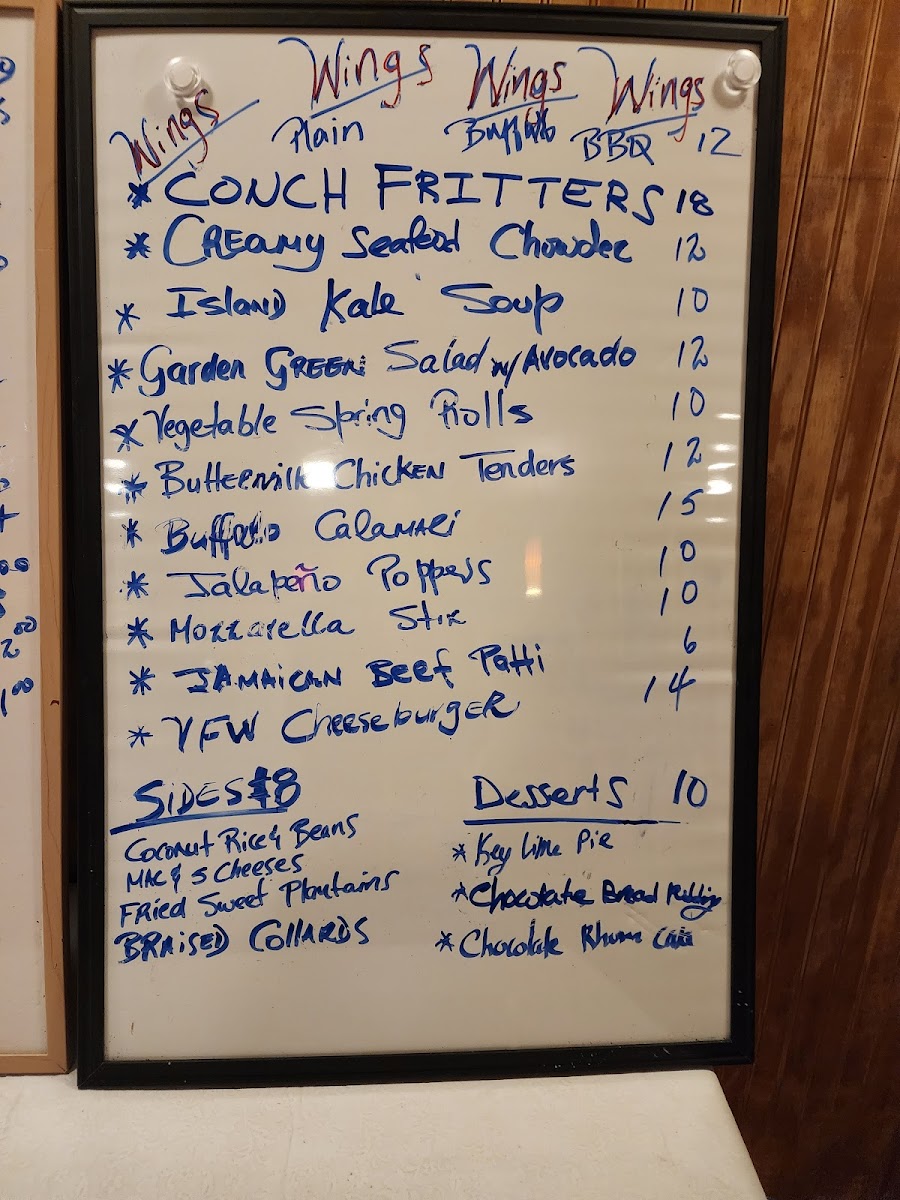 Wings Wings Wings Wings
Plain Buffalo BBQ 12
* CONCH FRITTERS 18
* CREAMY Seafood Chowder 12
* ISLAND Kale Soup 10
* Garden GREEN Salad w/ AVOCADO 12
* Vegetable Spring Rolls 10
* Buttermilk Chicken Tenders 12
* Buffalo CALAMARi 15
* Jalapeño Poppers 10
* Mozzarella Stix 10
* JAMAICAN Beef Patti 6
* VFW CheeseburgER 14
SIDES $8
Coconut Rice & Beans
MAC & 5 Cheeses
FRied Sweet Plantains
BRAISED COLLARDS
Desserts 10
* Key Lime Pie
* Chocolate Bread Pudding
* Chocolate Rhum Cake